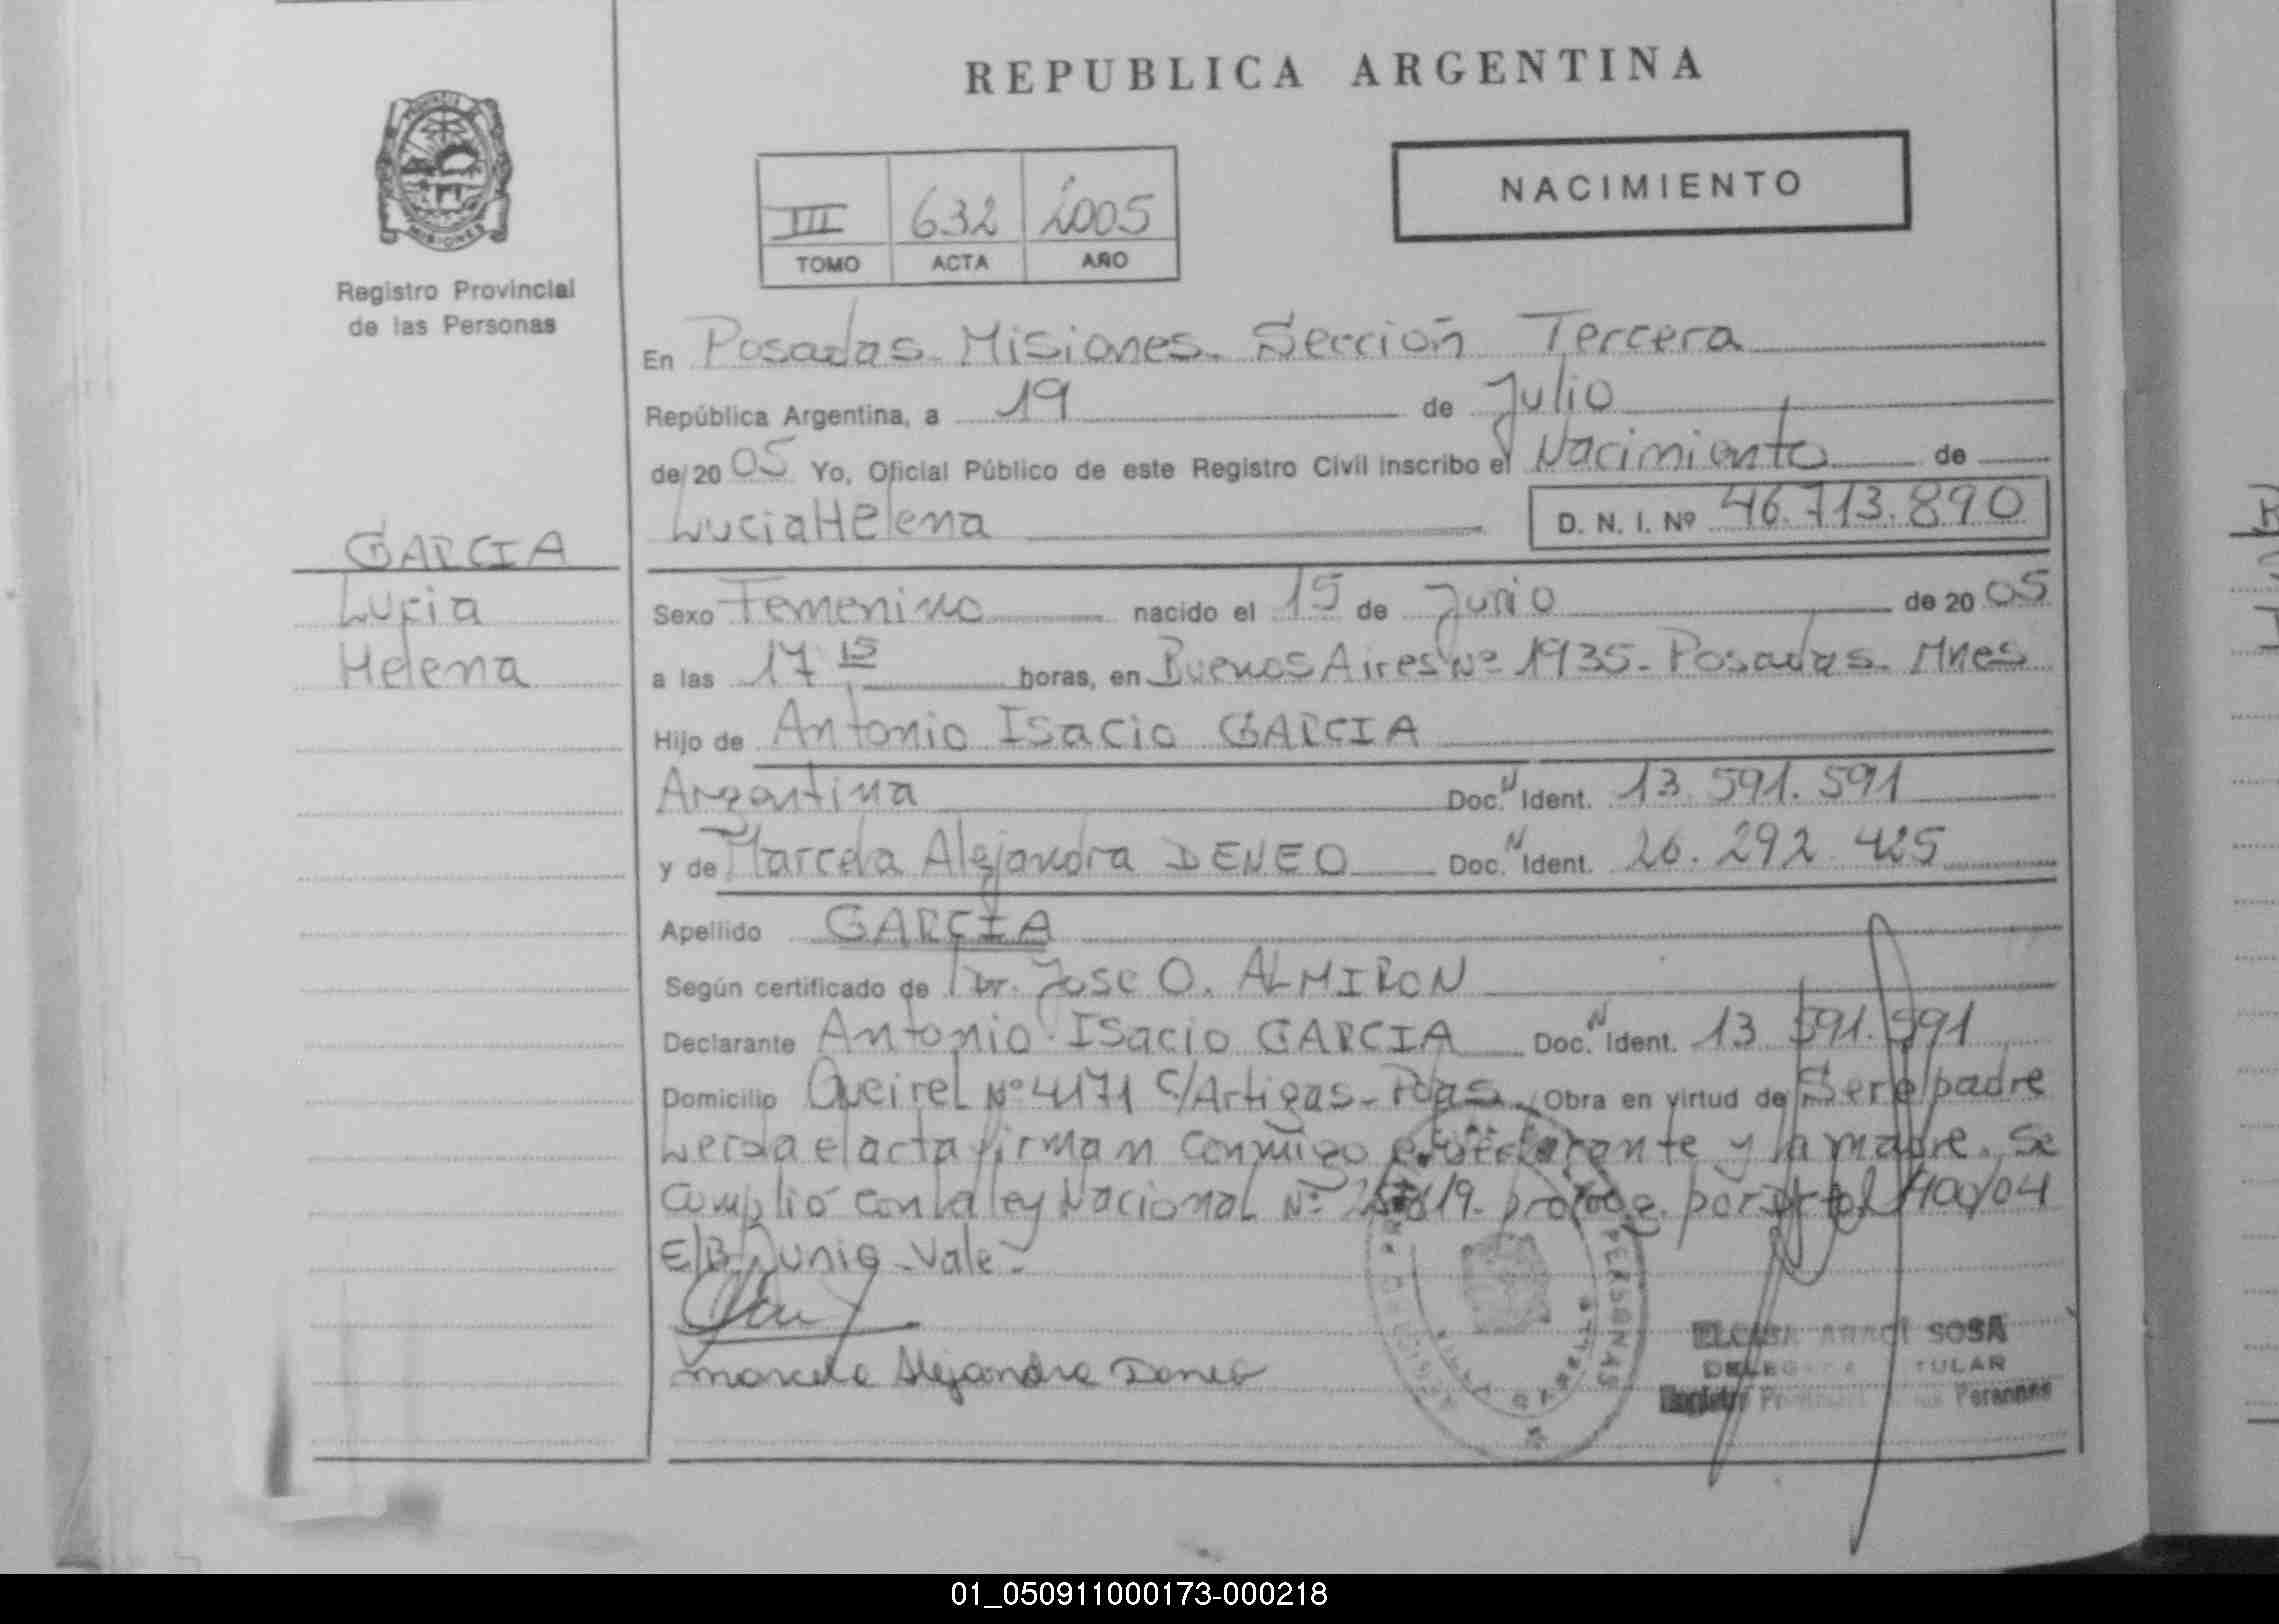 REPUBLICA ARGENTINA
PROVINCIA
MISIONES
Registro Provincial
de las Personas
III 632 2005
TOMO ACTA AÑO
NACIMIENTO
En Posadas. Misiones. Sección Tercera
República Argentina, a 19 de Julio
de 20 05 Yo, Oficial Público de este Registro Civil inscribo el Nacimiento de
Lucia Helena D. N. I. Nº 46.713.890
GARCIA
Lucia
Helena
Sexo Femenino nacido el 15 de Junio de 20 05
a las 17 15 horas, en Buenos Aires Nº 1935- Posadas. Mnes
Hijo de Antonio Isacio GARCIA
Argentina Doc. N Ident. 13.591.591
y de Marcela Alejandra DENEO Doc. N Ident. 26.292.425
Apellido GARCIA
Según certificado de Dr. Jose O. ALMIRON
Declarante Antonio Isacio GARCIA Doc. N Ident. 13.591.591
Domicilio Queirel Nº 4171 C/Artigas- Pdas. Obra en virtud de Ser el padre
Leida el acta firman conmigo el declarante y la madre. Se
cumplió con la ley Nacional Nº por 400/04
E/B Junio-Vale-
Marcela Alejandra Deneo
PERSONAS
SOSA
Personas
01_050911000173-000218